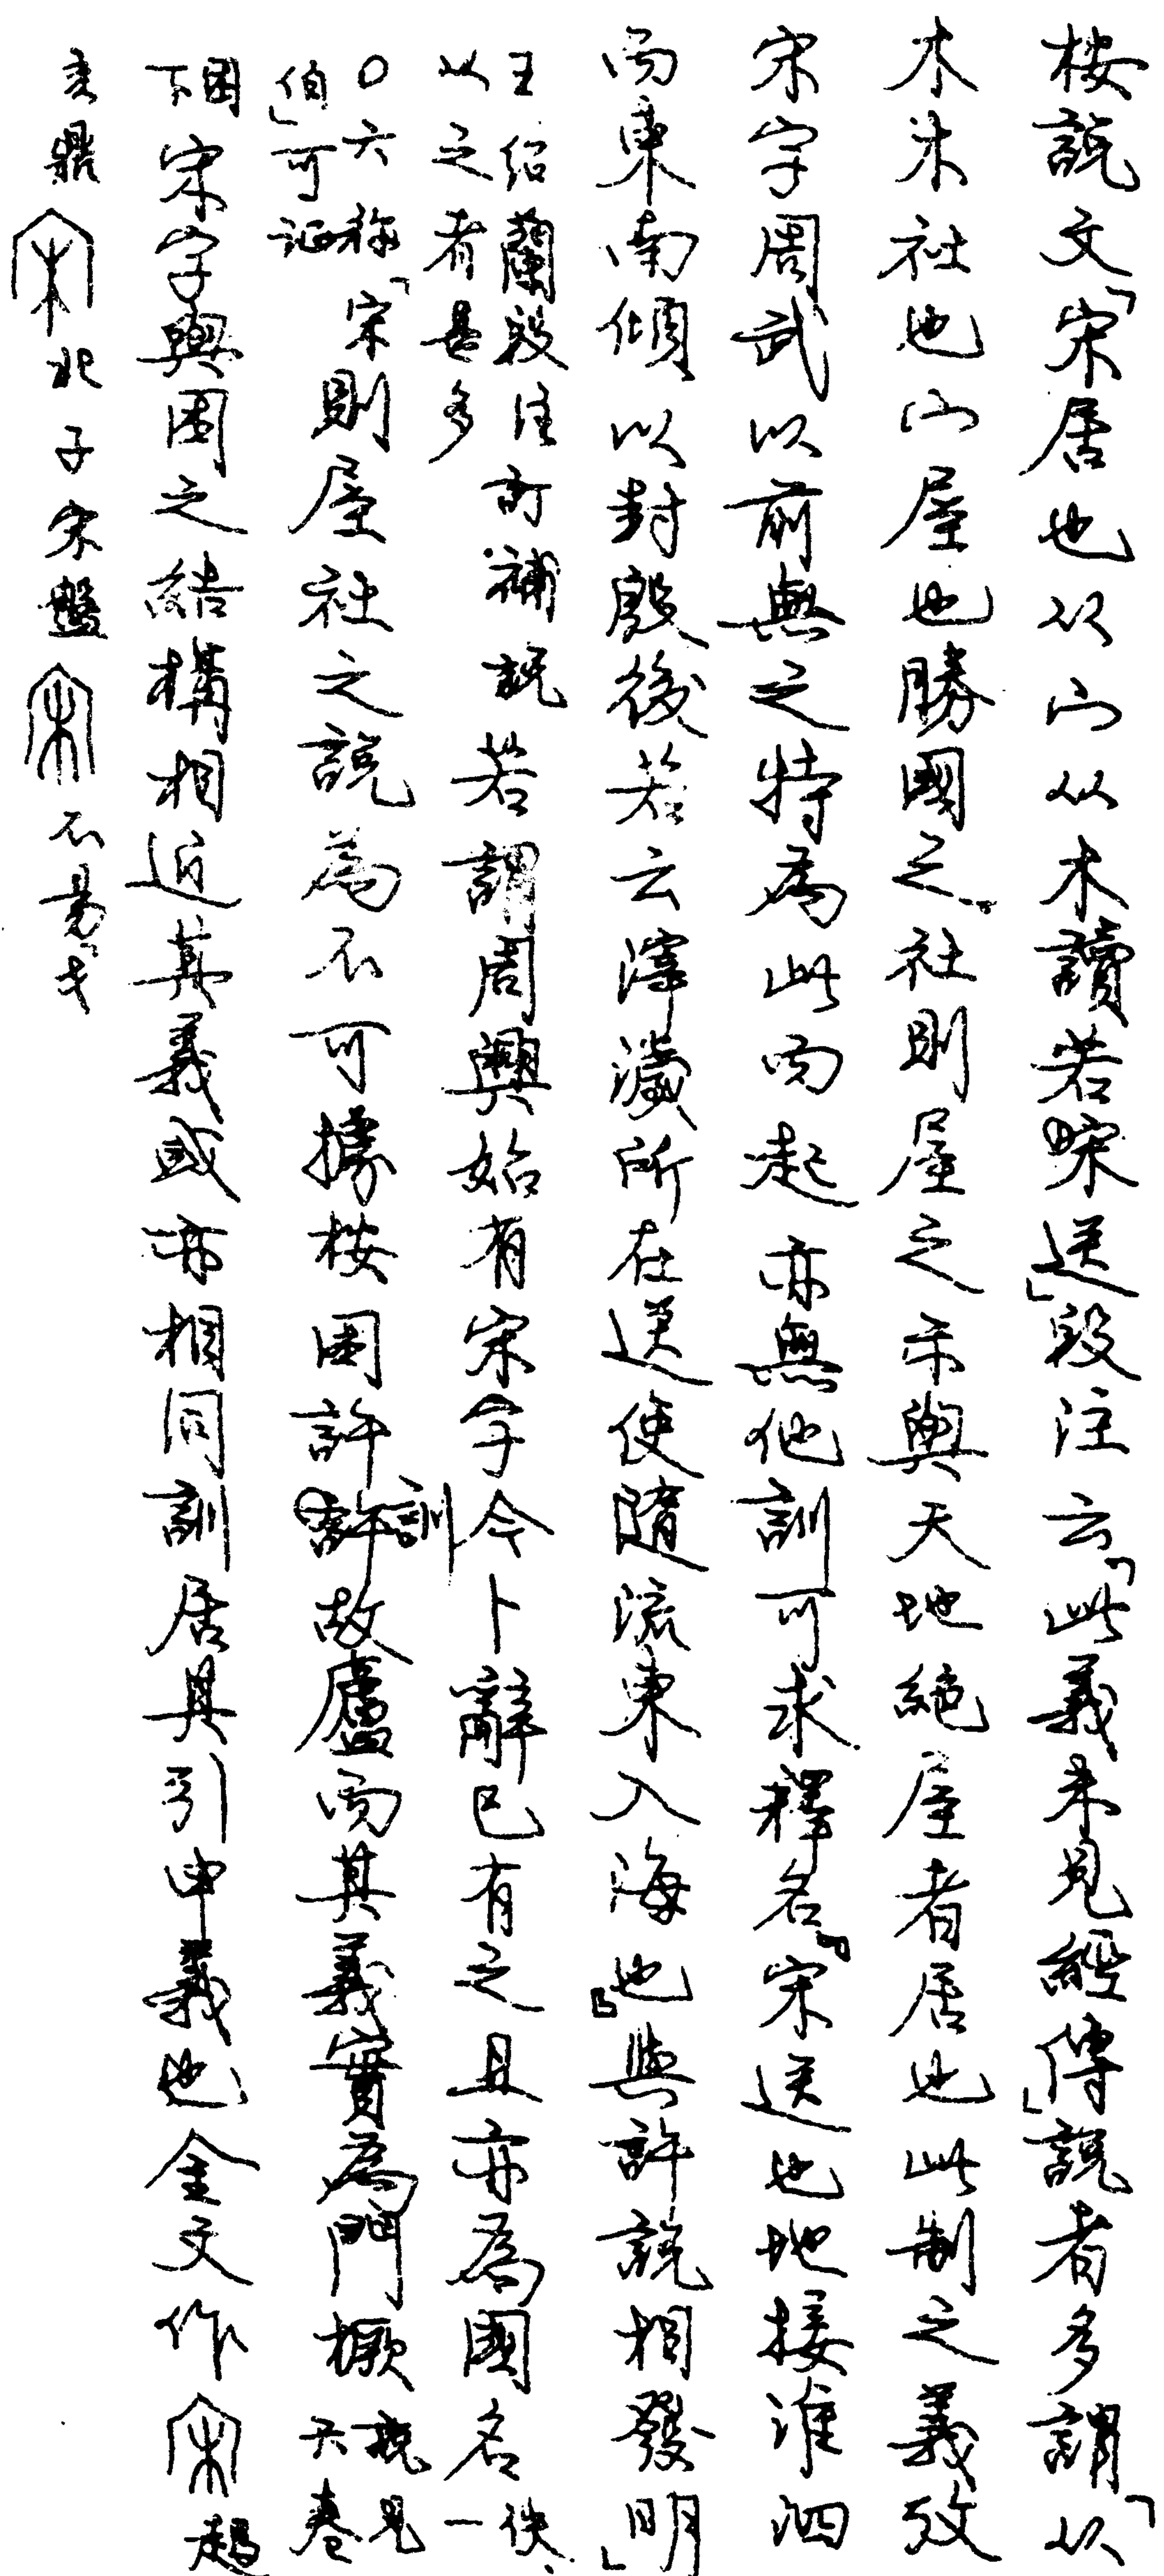 桉說文「宋居也从宀从木讀若㝥送」段注云「此義未見經傳」說者多謂「从
木木社也宀屋也勝國之社則屋之示與天地絕屋者居也此制之義攷
宋字周武以前無之特為此而起亦無他訓可求釋名『宋送也地接淮泗
而東南傾以封殷後若云滓濊所在送使隨流東入海也』與許說相發明」
王紹蘭段注訂補說
从之者甚多
若謂周興始有宋字今卜辭已有之且亦為國名佚、一
〇六稱「宋伯」可証
則屋社之說為不可據桉困許訓故廬而其義實為門橛說見六卷
困下
宋字與困之結構相近其義或亦相同訓居其引申義也金文作
趞亥鼎
北子宋盤
不易弋